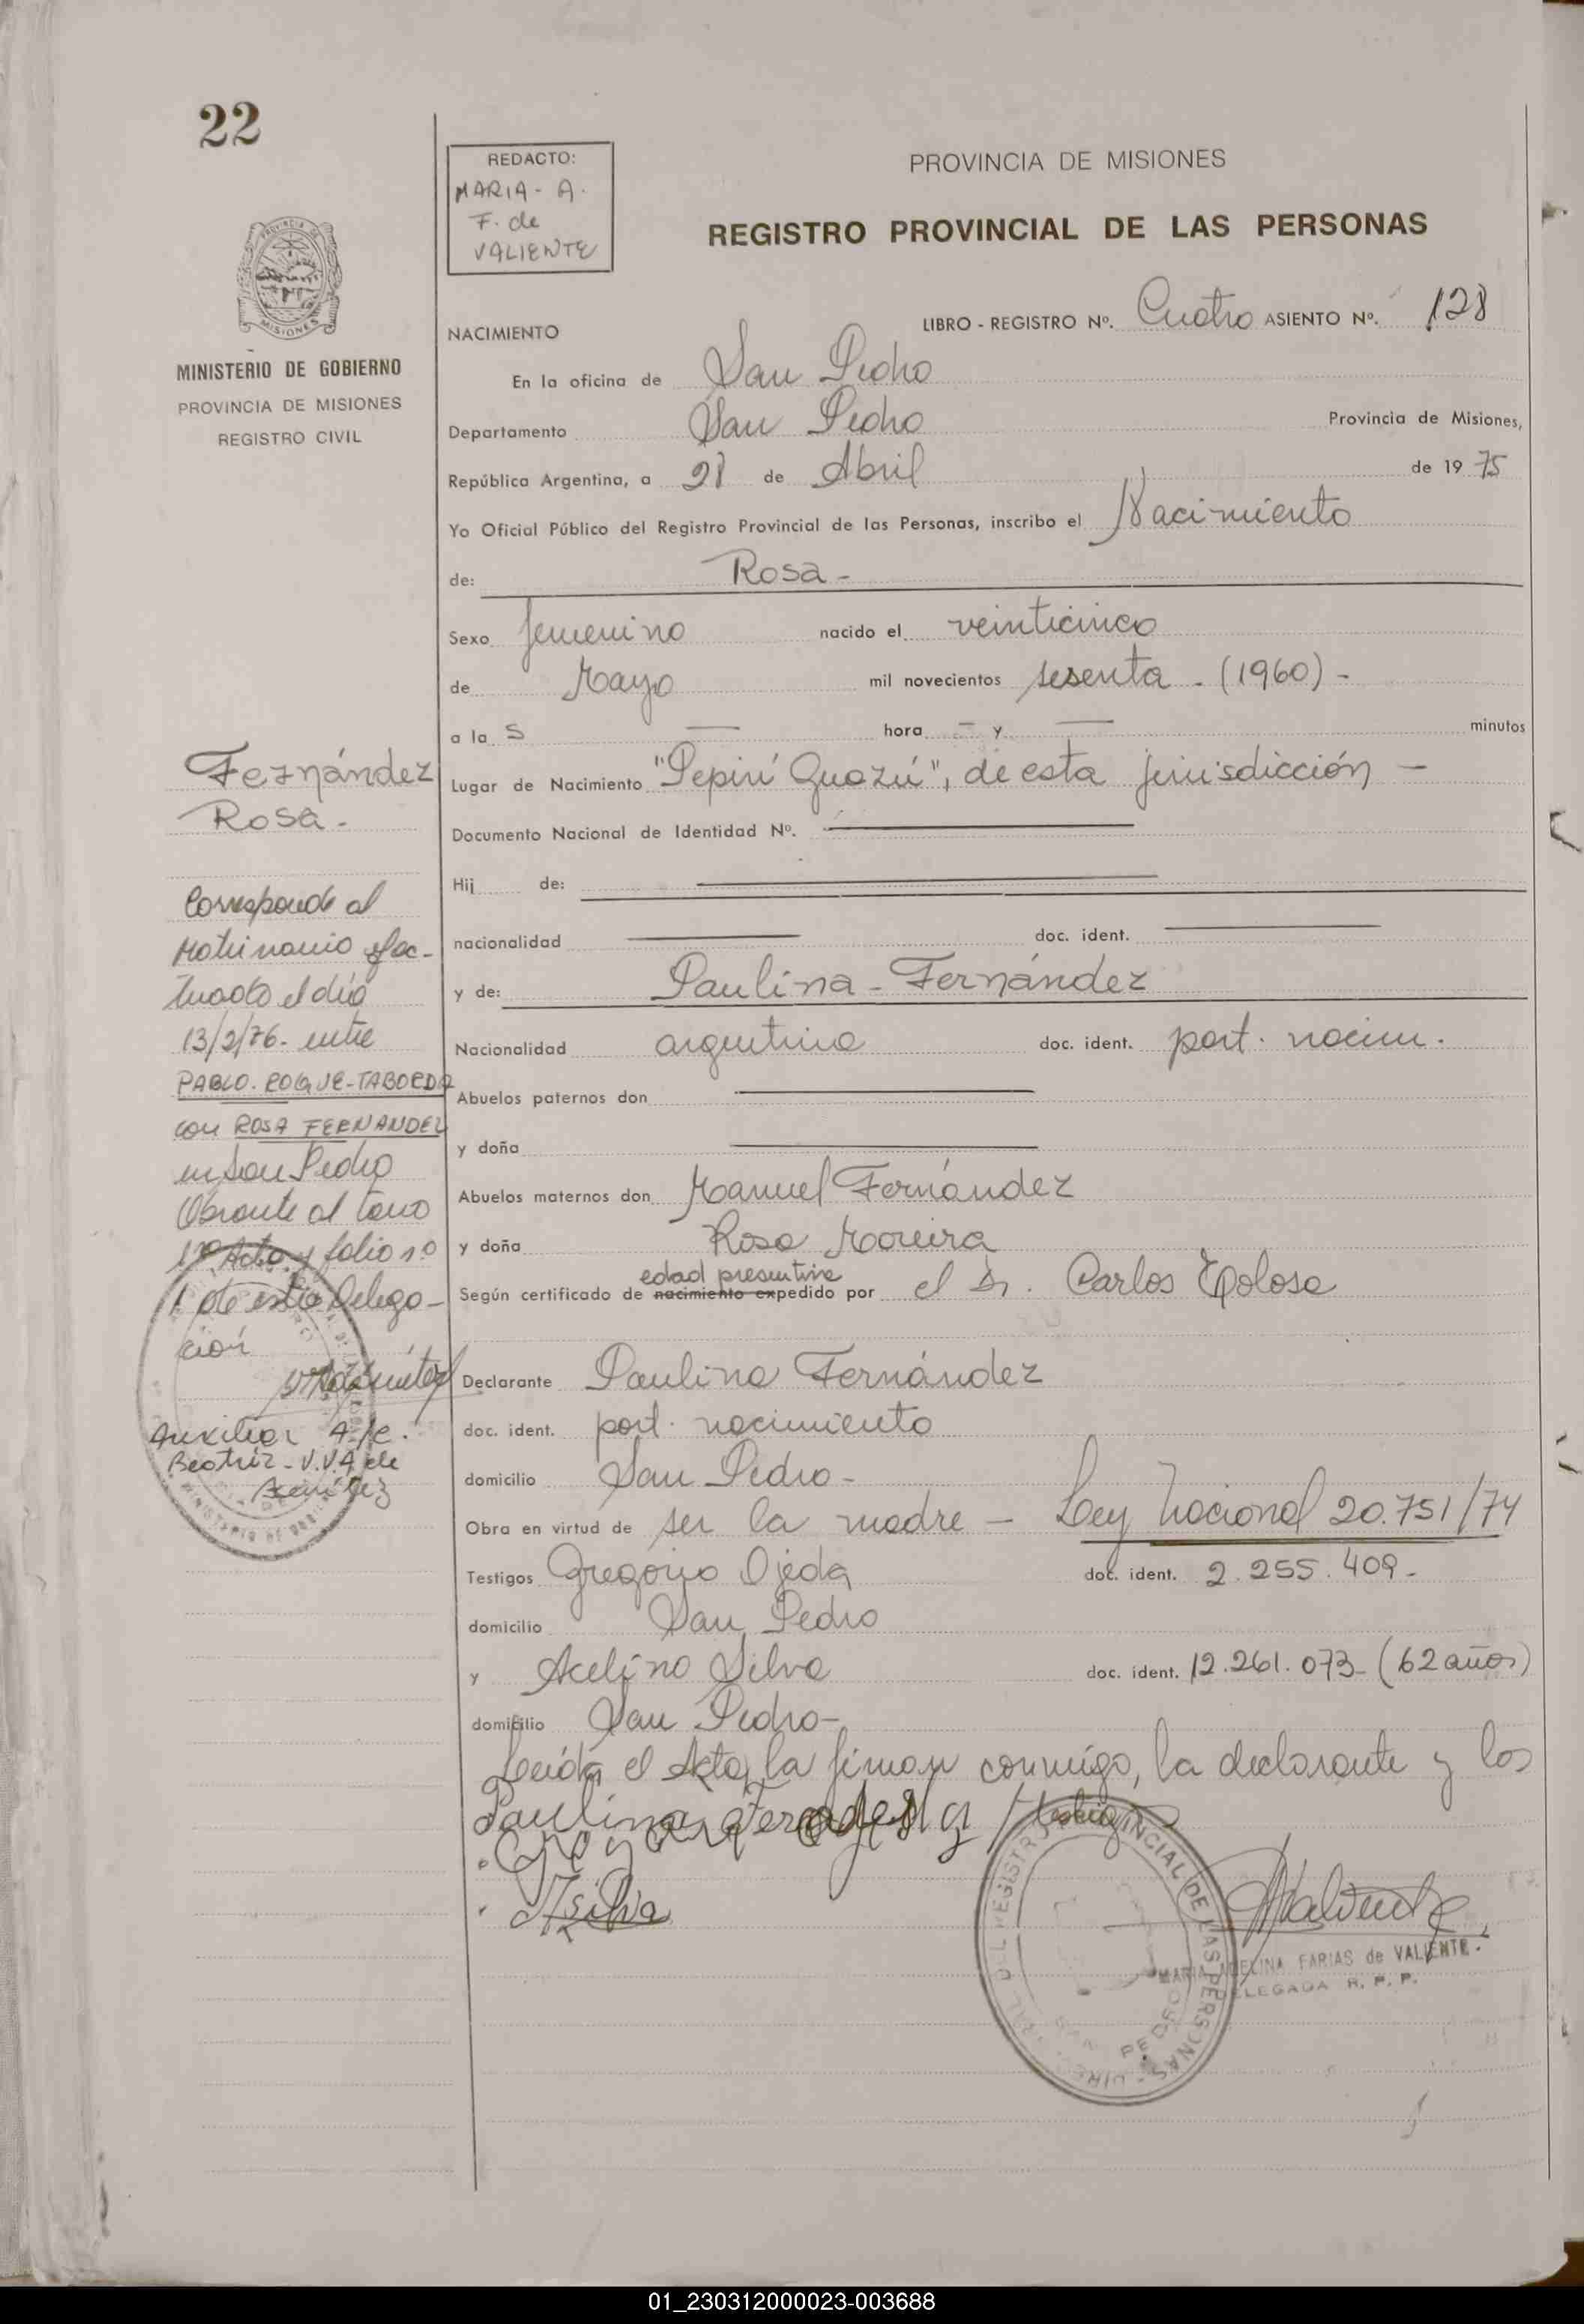 22
REDACTO:
MARIA - A.
F. de
VALIENTE
PROVINCIA DE MISIONES
REGISTRO PROVINCIAL DE LAS PERSONAS
MISIONES
MINISTERIO DE GOBIERNO
PROVINCIA DE MISIONES
REGISTRO CIVIL
NACIMIENTO
LIBRO - REGISTRO Nº. Cuatro ASIENTO Nº. 128
En la oficina de San Pedro
Departamento San Pedro Provincia de Misiones,
República Argentina, a 28 de Abril de 19 75
Yo Oficial Público del Registro Provincial de las Personas, inscribo el Nacimiento
de: Rosa -
Sexo femenino nacido el veinticinco
de Mayo mil novecientos sesenta - (1960) -
a la s — hora — y — minutos
Lugar de Nacimiento "Pepirí Guazú", de esta jurisdicción —
Documento Nacional de Identidad Nº. —
Hij de: —
nacionalidad — doc. ident. —
y de: Paulina - Fernández
Nacionalidad argentina doc. ident. part. nacim.
Abuelos paternos don —
y doña —
Abuelos maternos don Manuel Fernández
y doña Rosa Moreira
edad presuntiva
Según certificado de nacimiento expedido por el Dr. Carlos Tolosa
Declarante Paulina Fernández
doc. ident. part. nacimiento
domicilio San Pedro -
Obra en virtud de ser la madre — Ley Nacional 20.751/74
Testigos Gregorio Ojeda doc. ident. 2.255.409 -
domicilio San Pedro
y Acelino Silva doc. ident. 12.261.073 - (62 años)
domicilio San Pedro -
Leída el Acta, la firman conmigo, la declarante y los
testigos
Paulina
ASilva
MARIA ADELINA FARIAS de VALIENTE.
DELEGADA R. P. P.
DEL REGISTRO PROVINCIAL DE LAS PERSONAS
SAN PEDRO
Fernández
Rosa -
Corresponde al
Matrimonio efec-
tuado el día
13/2/76 - entre
PABLO. ROQUE - TABORDA
con ROSA FERNANDEZ
en San Pedro
Obrante al tomo
1º Acta y folio nº
1 de esta Delega-
ción
Auxiliar A/c.
Beatriz - V.V.A de
01_230312000023-003688